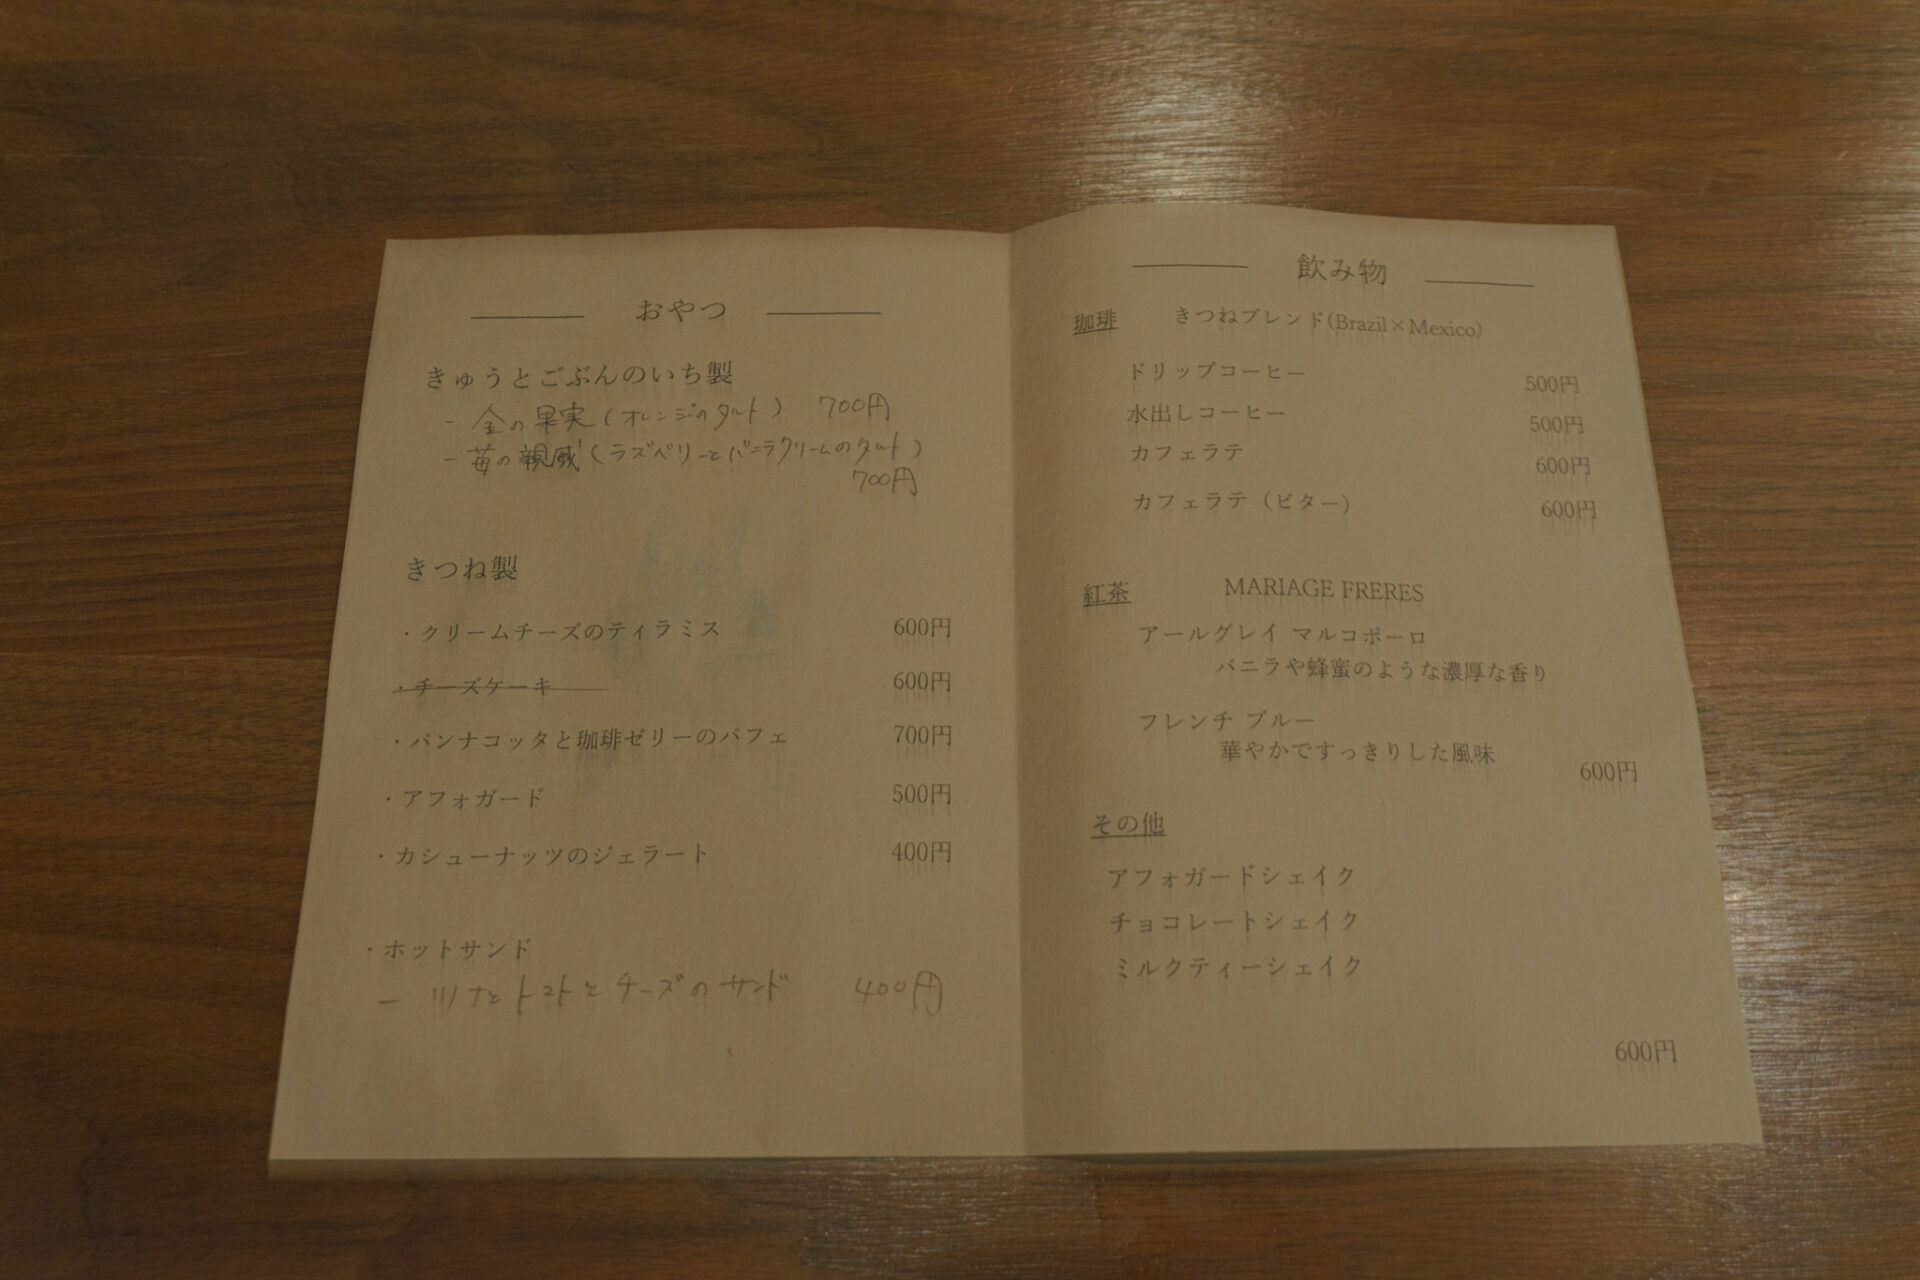 おやつ
きゅうとごぶんのいち製
- 金の果実(オレンジのタルト) 700円
- 苺の親戚(ラズベリーとバニラクリームのタルト)
700円
きつね製
・クリームチーズのティラミス 600円
・チーズケーキ 600円
・パンナコッタと珈琲ゼリーのパフェ 700円
・アフォガード 500円
・カシューナッツのジェラート 400円
・ホットサンド
- ツナとトマトとチーズのサンド 400円
飲み物
珈琲 きつねブレンド(Brazil×Mexico)
ドリップコーヒー 500円
水出しコーヒー 500円
カフェラテ 600円
カフェラテ（ビター） 600円
紅茶 MARIAGE FRERES
アールグレイ マルコポーロ
バニラや蜂蜜のような濃厚な香り
フレンチ ブルー
華やかですっきりした風味
600円
その他
アフォガードシェイク
チョコレートシェイク
ミルクティーシェイク
600円